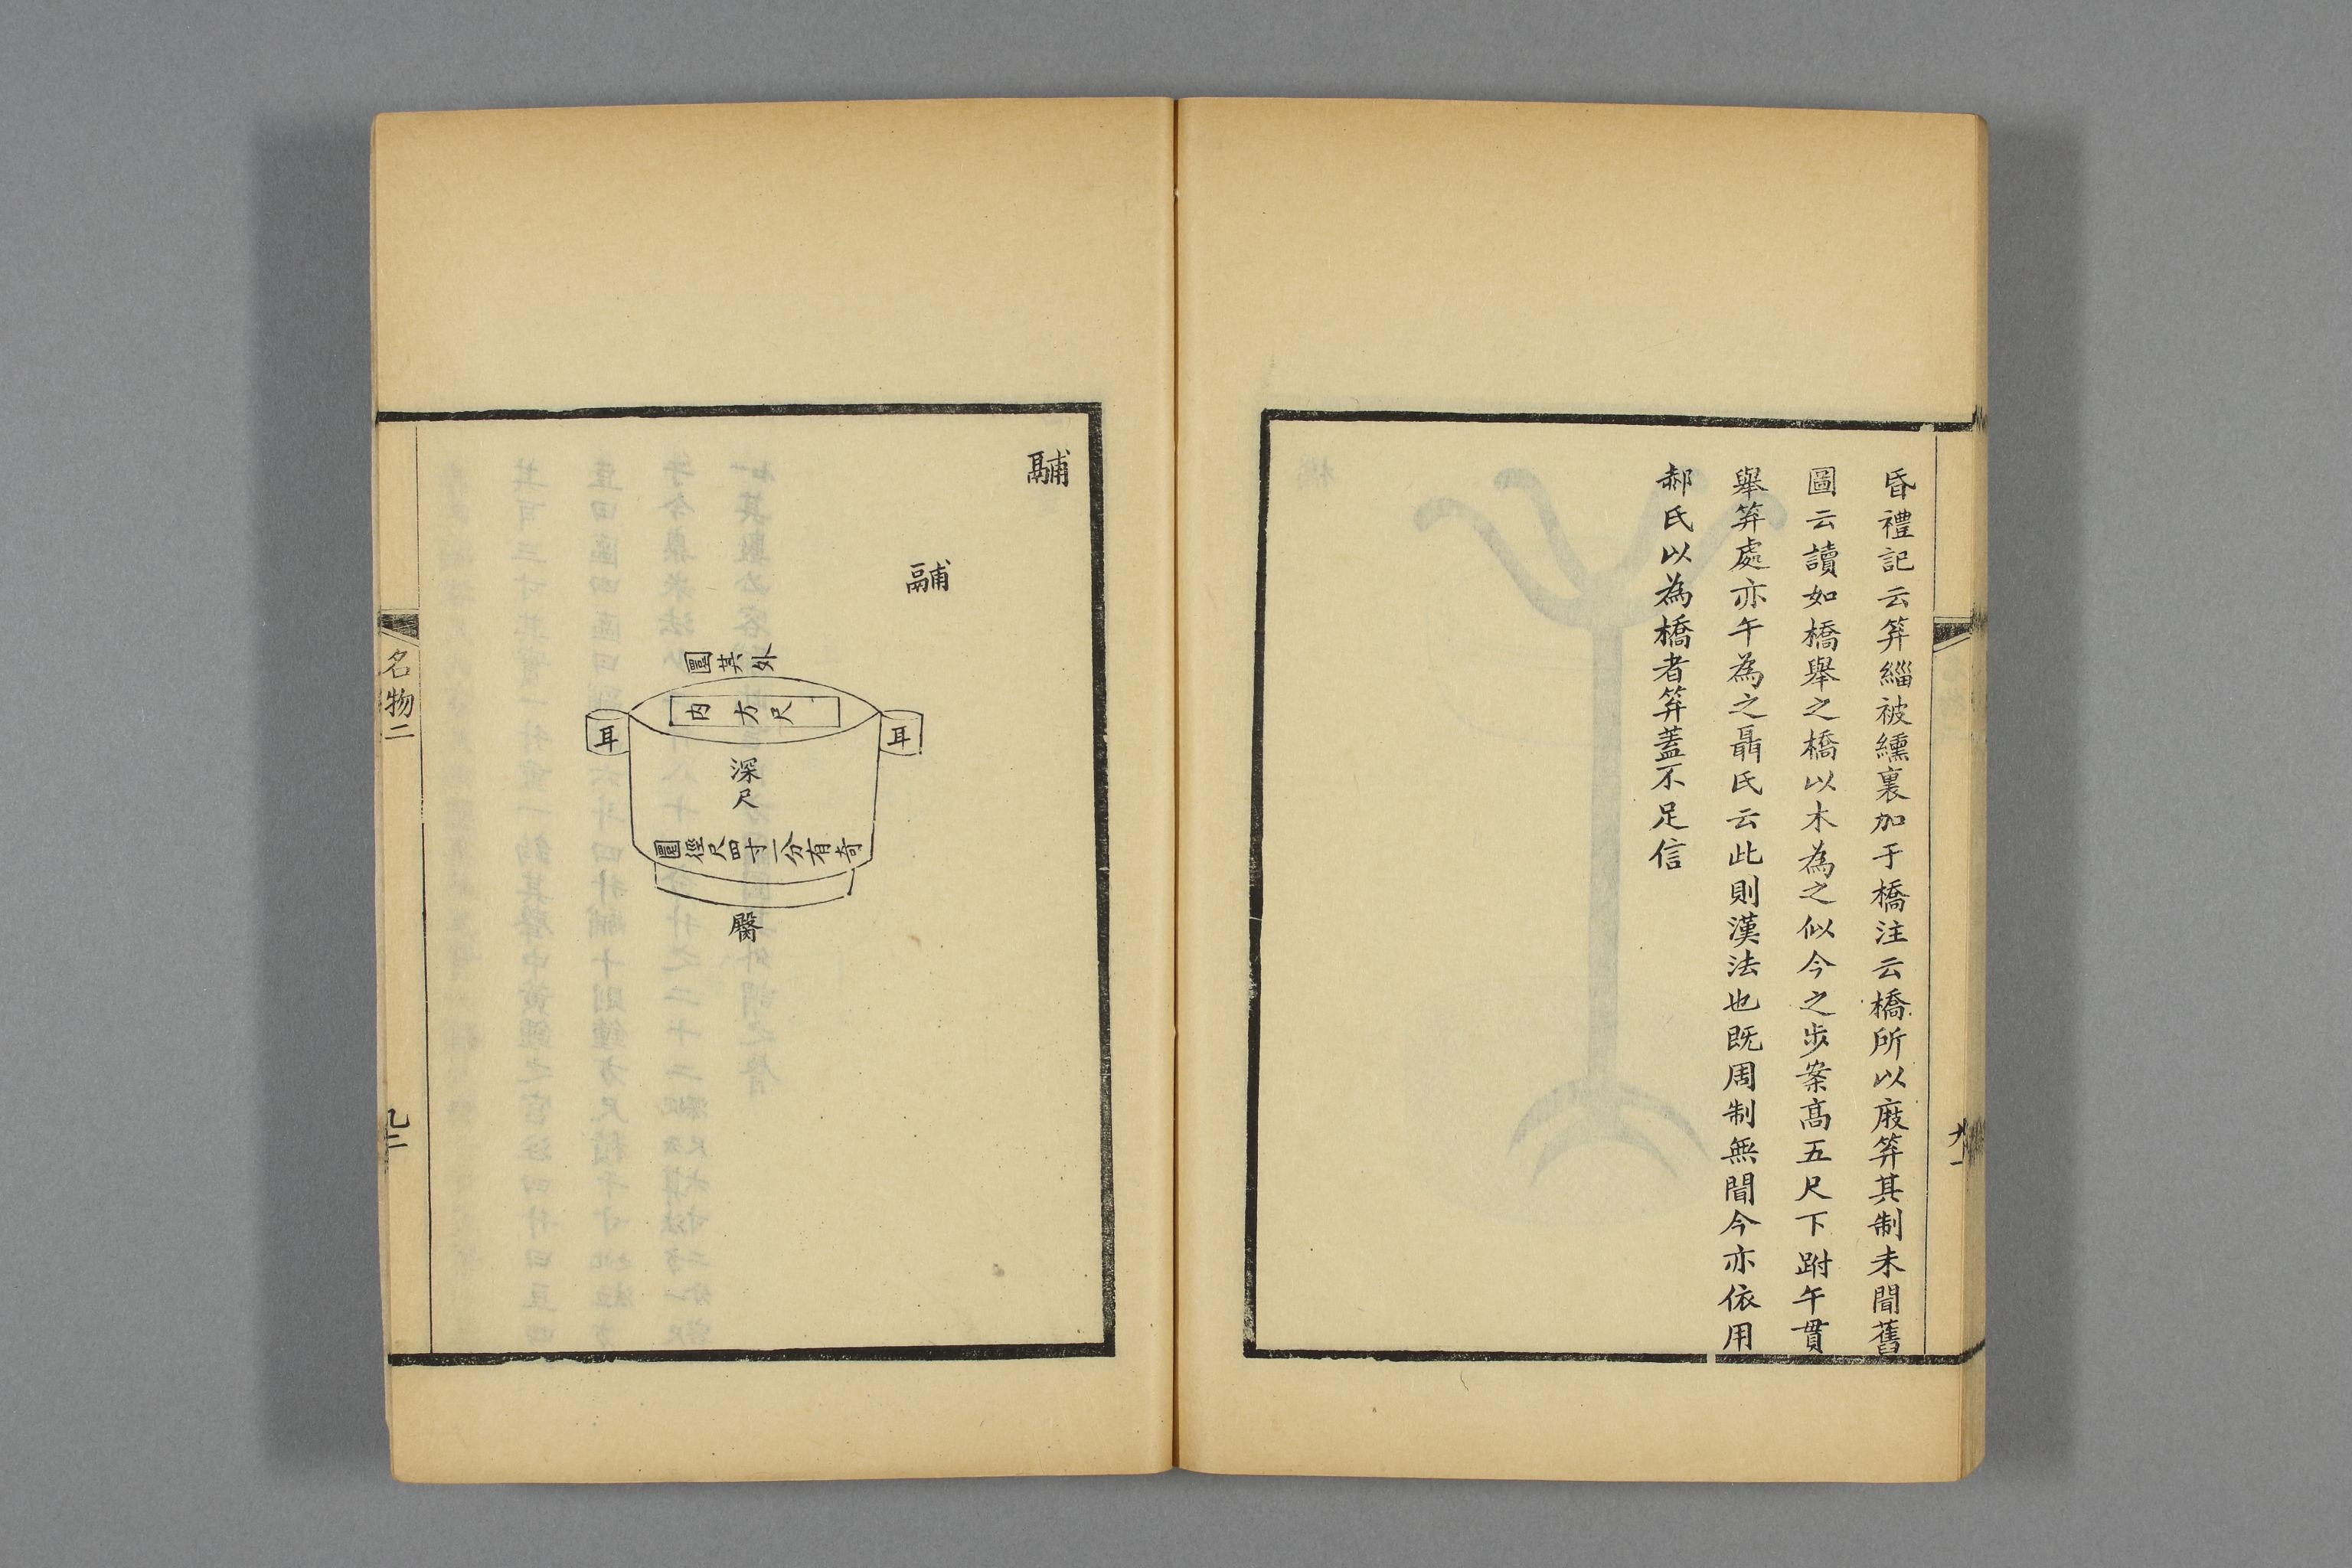 昏禮記云笲緇被纁裏加于橋注云橋所以庪笲其制未聞舊
圖云讀如橋舉之橋以木為之似今之步案高五尺下跗午貫
舉笲處亦午為之聶氏云此則漢法也既周制無聞今亦依用
郝氏以為橋者笲蓋不足信
九一
鬴
鬴
外其圜
內方尺
耳
耳
深尺
圜徑尺四寸一分有奇
臋
名物二
九二